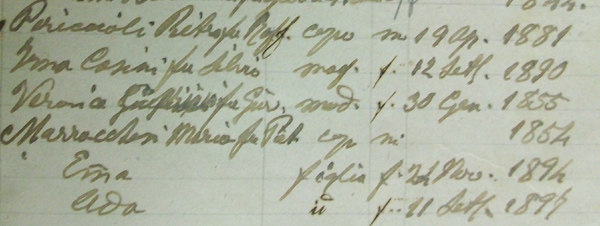 Periccioli Pietro fu Raff. capo m 19 Ap. 1881
Irma Casini fu Silvio mog. f. 12 Sett. 1890
Veronica fu Giu. mad. f. 30 Gen. 1855
Marrocchesi Mario fu cap m 1854
Ema figlia f. 24 Nov. 1894
Ada id f. 21 Sett. 1897